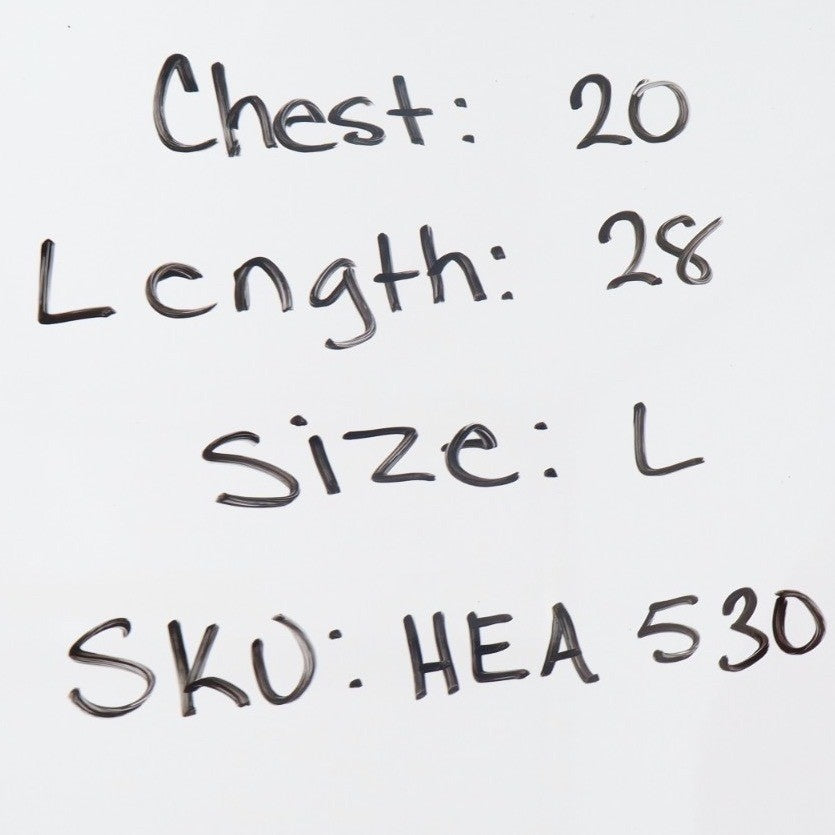 Chest: 20
Length: 28
Size: L
SKU: HEA 530